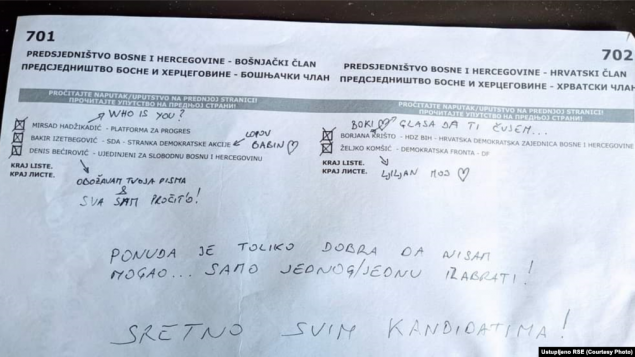 701
PREDSJEDNIŠTVO BOSNE I HERCEGOVINE - BOŠNJAČKI ČLAN
ПРЕДСЈЕДНИШТВО БОСНЕ И ХЕРЦЕГОВИНЕ - БОШЊАЧКИ ЧЛАН
PROČITAJTE NAPUTAK/UPUTSTVO NA PREDNJOJ STRANICI!
ПРОЧИТАЈТЕ УПУТСТВО НА ПРЕДЊОЈ СТРАНИ!
WHO IS YOU?
MIRSAD HADŽIKADIĆ - PLATFORMA ZA PROGRES
BAKIR IZETBEGOVIĆ - SDA - STRANKA DEMOKRATSKE AKCIJE
LOPOV
BABIN ♡
DENIS BEĆIROVIĆ - UJEDINJENI ZA SLOBODNU BOSNU I HERCEGOVINU
KRAJ LISTE.
КРАЈ ЛИСТЕ.
OBOŽAVAM TVOJA PISMA
&
SVA SAM PROČIT'O!
702
PREDSJEDNIŠTVO BOSNE I HERCEGOVINE - HRVATSKI ČLAN
ПРЕДСЈЕДНИШТВО БОСНЕ И ХЕРЦЕГОВИНЕ - ХРВАТСКИ ЧЛАН
PROČITAJTE NAPUTAK/UPUTSTVO NA PREDNJOJ STRANICI!
ПРОЧИТАЈТЕ УПУТСТВО НА ПРЕДЊОЈ СТРАНИ!
BOKI ♡ GLASA DA TI ČUJEM...
BORJANA KRIŠTO - HDZ BIH - HRVATSKA DEMOKRATSKA ZAJEDNICA BOSNE I HERCEGOVINE
ŽELJKO KOMŠIĆ - DEMOKRATSKA FRONTA - DF
KRAJ LISTE.
КРАЈ ЛИСТЕ.
LJILJAN MOJ ♡
PONUDA JE TOLIKO DOBRA DA NISAM
MOGAO... SAMO JEDNOG/JEDNU IZABRATI!
SRETNO SVIM KANDIDATIMA!
Ustupljeno RSE (Courtesy Photo)